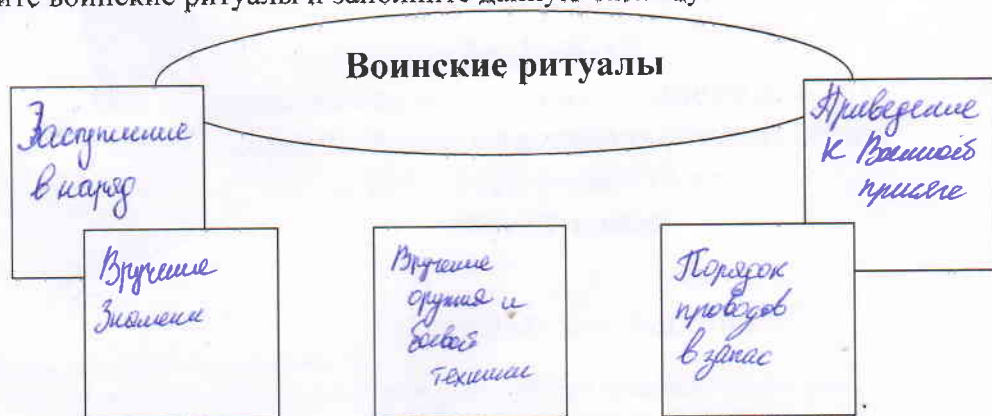 ите воинские ритуалы и заполните данную
Воинские ритуалы
Заступление
в наряд
Приведение
к Военной
присяге
Вручение
Знамени
Вручение
оружия и
боевой
техники
Порядок
проводов
в запас